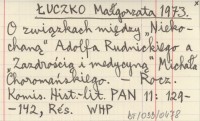 ŁUCZKO Małgorzata 1973.
O związkach między „Nieko-
chaną" Adolfa Rudnickiego a
„Zazdrością i medycyną" Michała
Choromańskiego. Rocz.
Komis. Hist-lit. PAN 11: 129-
-142, Rés. WHP
br/033/0478